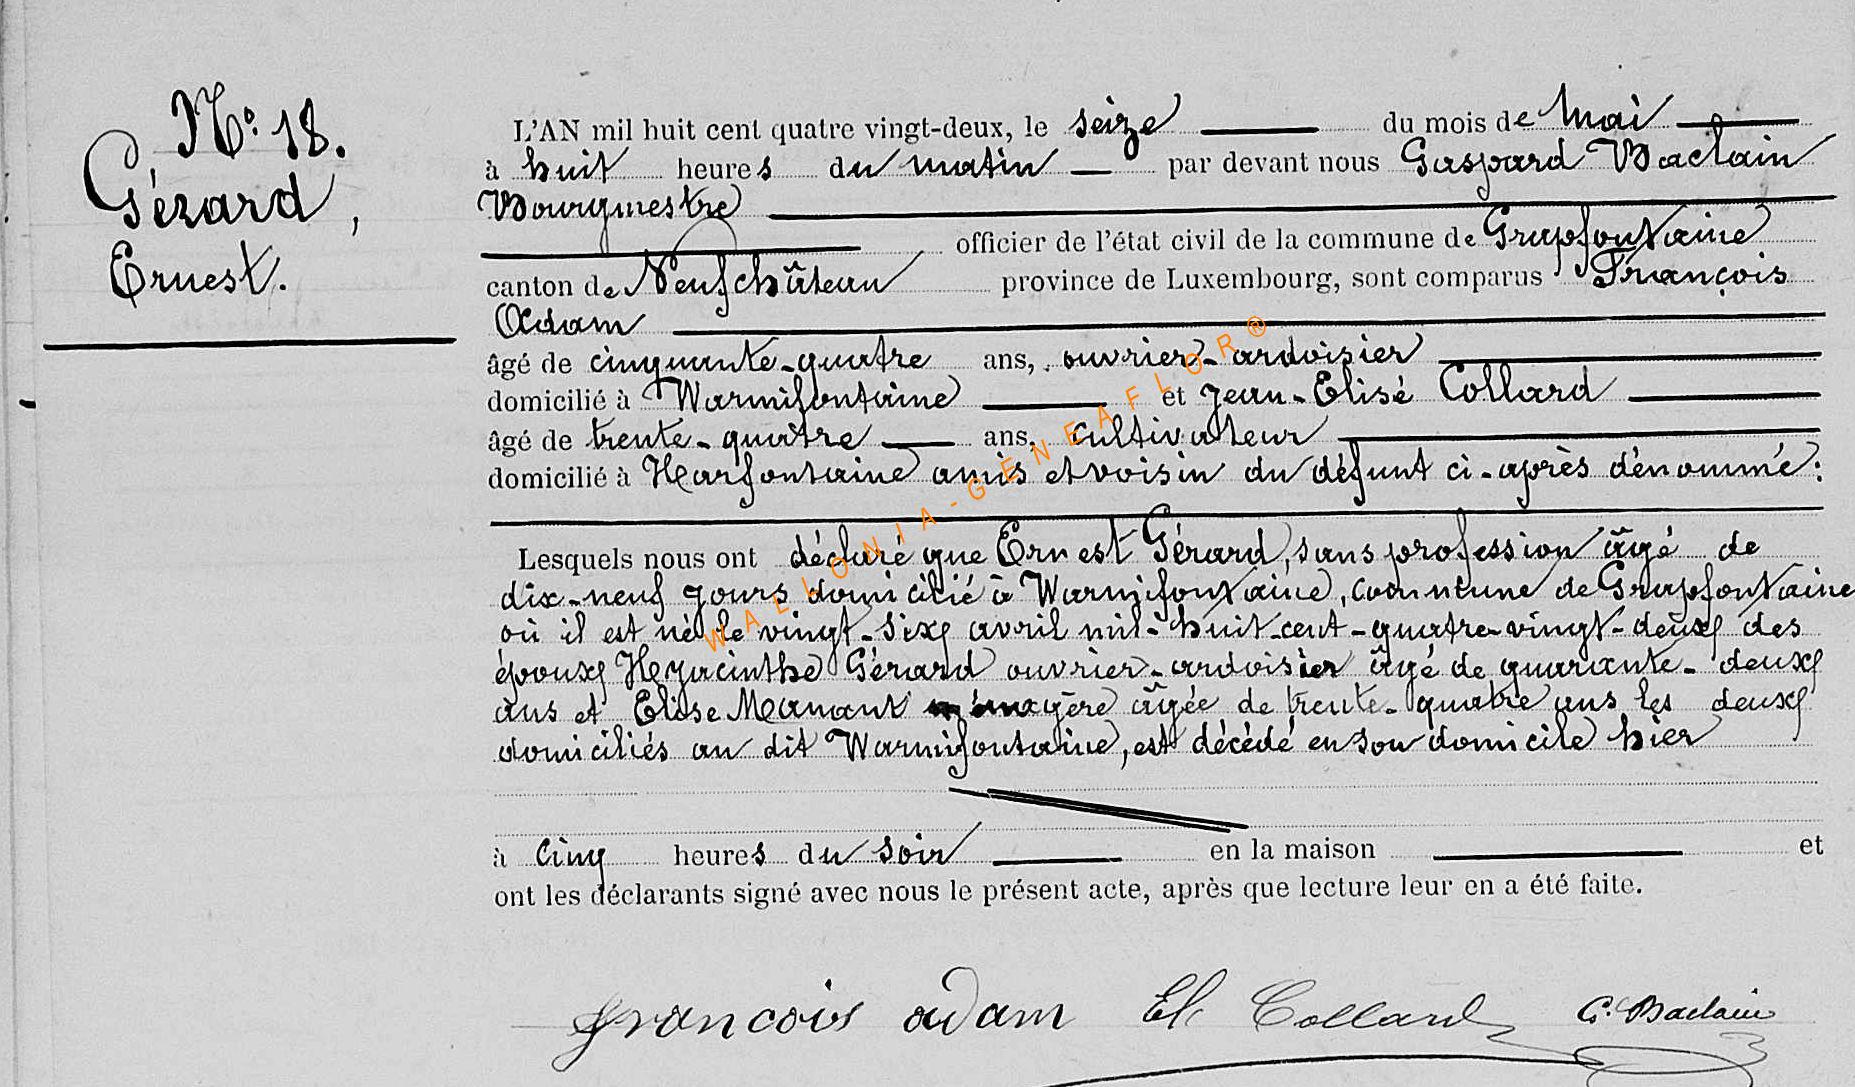 N° 18.
Gérard,
Ernest.
L'AN mil huit cent quatre vingt-deux, le seize du mois de Mai
à huit heures du matin par devant nous Gaspard Baclain
Bourgmestre
officier de l'état civil de la commune de Grapfontaine
canton de Neufchâteau province de Luxembourg, sont comparus François
Adam
âgé de cinquante-quatre ans, ouvrier-ardoisier
domicilié à Warmifontaine et Jean-Elisé Collard
âgé de trente-quatre ans, cultivateur
domicilié à Harfontaine amis et voisin du défunt ci-après dénommé:
Lesquels nous ont déclaré que Ernest Gérard, sans profession âgé de
dix-neuf jours domicilié à Warmifontaine, commune de Grapfontaine
où il est né le vingt-six avril mil-huit-cent-quatre-vingt-deux des
époux Hyacinthe Gérard ouvrier-ardoisier âgé de quarante-deux
ans et Elise Manant ménagère âgée de trente-quatre ans les deux
domiciliés au dit Warmifontaine, est décédé en son domicile hier
à cinq heures du soir en la maison et
ont les déclarants signé avec nous le présent acte, après que lecture leur en a été faite.
françois adam El. Collard G. Baclain
WALLONIA-GENEAFLOR®